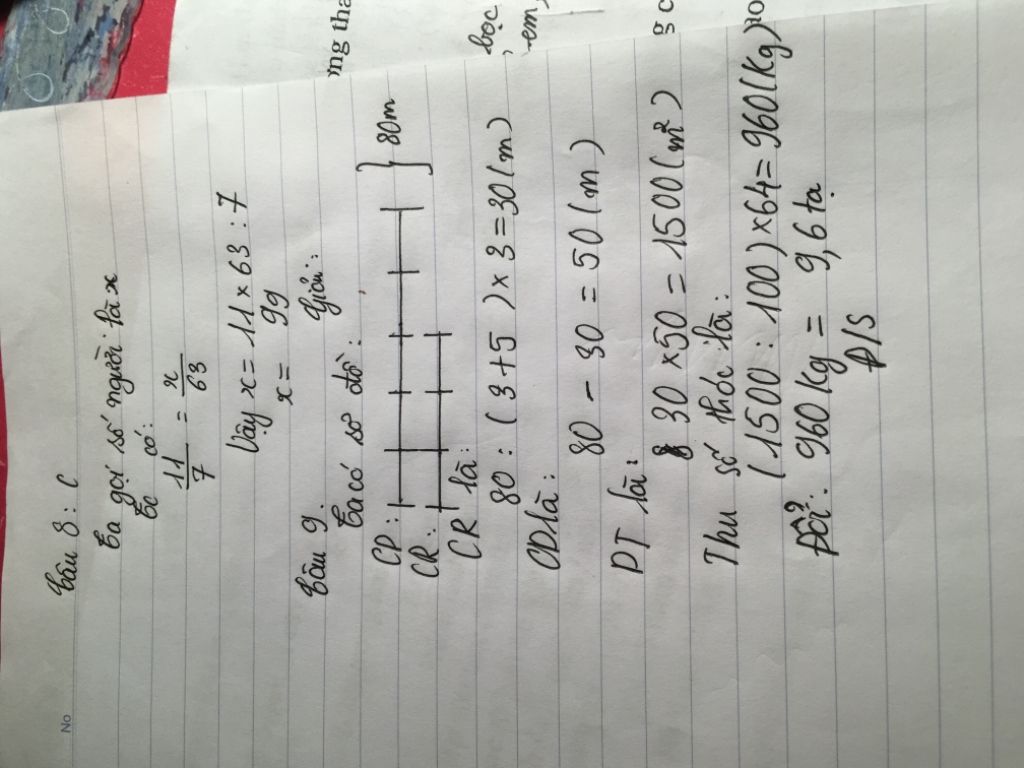 No
Câu 8 : C
Ta gọi số người là x
Ta có:
11/7 = x/63
Vậy x = 11 x 63 : 7
x = 99
Câu 9. Giải:
Ta có sơ đồ :
CD:
CR: 80m
CR là:
80 : (3+5) x 3 = 30 (m)
CD là:
80 - 30 = 50 (m)
DT là:
30 x 50 = 1500 (m²)
Thu số thóc là:
(1500 : 100) x 64 = 960 (kg)
Đổi: 960 kg = 9,6 tạ
Đ/S
ong tha
bọc
em,
g c